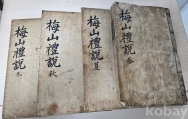 梅山禮說 春
梅山禮說 夏
梅山禮說 秋
梅山禮說 冬
kobay